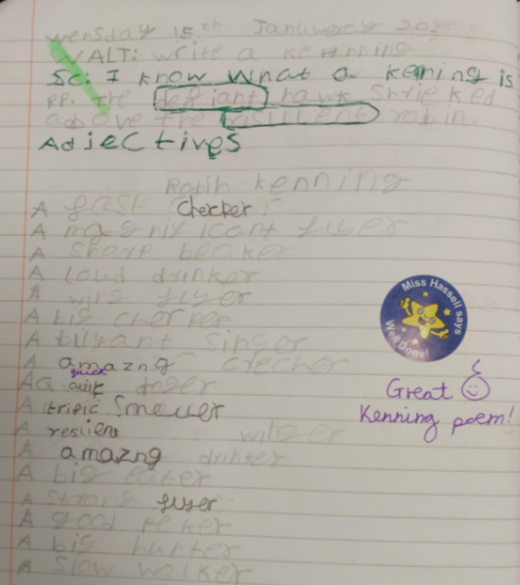 wensday 15th Januwary 20
WALT: write a kenning
Sc: I know what a kening is
PP. The defiant hawk Shrieked
above the robin.
Adjectives
Robin kenning
A fast Cherper
A magnificant flyer
A Sharp beaker
A loud drinker
A wile flyer
A big cherper
A buyant singer
A amazng
quick
A
A trific Smeller
A resilient
A amazng drinker
A big eater
A strong flyer
A good
A big hunter
A Slow walker
Miss Hassell says
Well Done!
Great
Kenning poem!